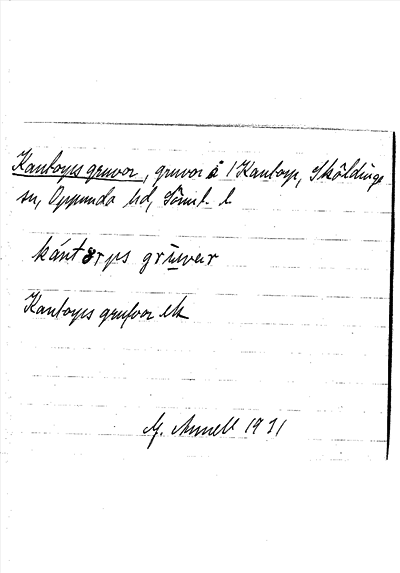 Kantorps gruvor, gruvor å /Kantorp, Sköldinge
sn, Oppunda hd, Söml. l
kántorps grùvωr
Kantorps grufvor ek
M. Annell 1931